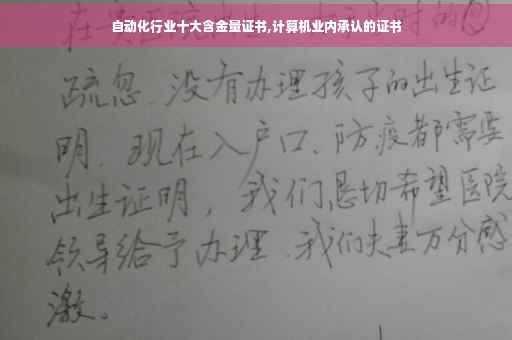 自动化行业十大含金量证书,计算机业内承认的证书
疏忽、没有办理孩子的出生证
明、现在入户口、防疫都需要
出生证明，我们恳切希望医院
领导给予办理、我们夫妻万分感
激。